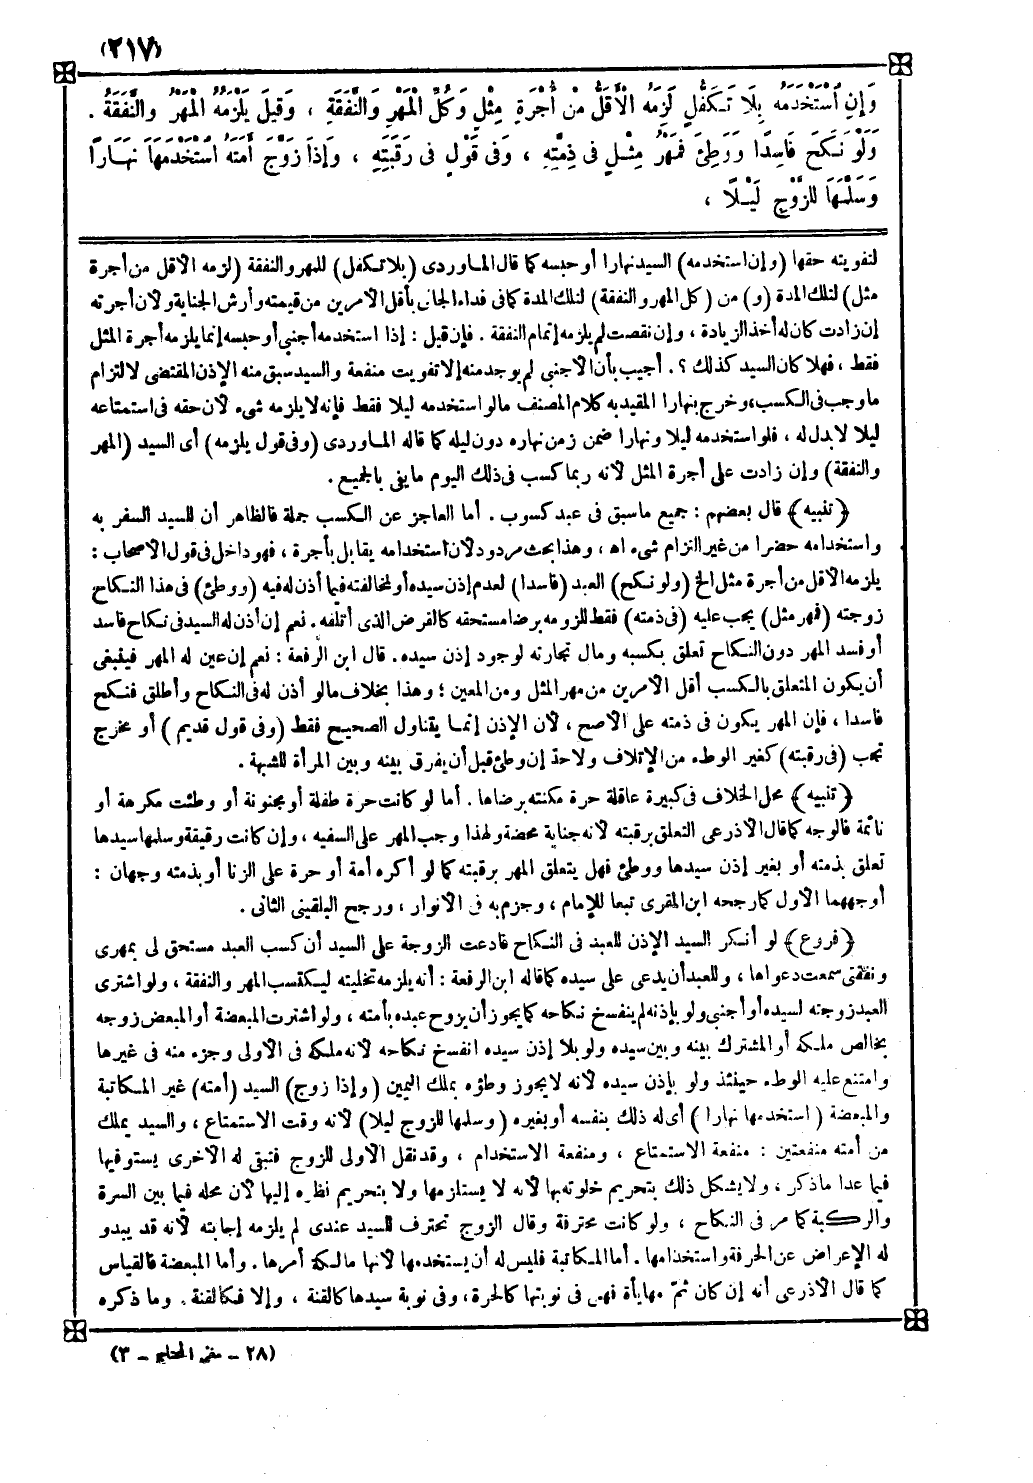 (٢١٧)
وَإِنِ اسْتَخْدَمَهُ بِلَا تَكَفُّلٍ لَزِمَهُ الْأَقَلُّ مِنْ أُجْرَةِ مِثْلٍ وَكُلِّ الْمَهْرِ وَالنَّفَقَةِ ، وَقِيلَ يَلْزَمُهُ الْمَهْرُ وَالنَّفَقَةُ .
وَلَوْ نَكَحَ فَاسِدًا وَوَطِئَ فَمَهْرُ مِثْلٍ فِى ذِمَّتِهِ ، وَفِى قَوْلٍ فِى رَقَبَتِهِ ، وَإِذَا زَوَّجَ أَمَتَهُ اسْتَخْدَمَهَا نَهَارًا
وَسَلَّمَهَا لِلزَّوْجِ لَيْلًا ،
لتفويته حقها (وإن استخدمه) السيد نهارا أو حبسه كما قال الماوردى (بلا تكفل) للمهر والنفقة (لزمه الأقل من أجرة
مثل) لتلك المدة (و) من (كل المهر والنفقة) لتلك المدة كما فى فداء الجانى بأقل الأمرين من قيمته وأرش الجناية ولأن أجرته
إن زادت كان له أخذ الزيادة ، وإن نقصت لم يلزمه إتمام النفقة . فإن قيل : إذا استخدمه أجنبي أو حبسه إنما يلزمه أجرة المثل
فقط ، فهلا كان السيد كذلك ؟ . أجيب بأن الأجنبى لم يوجد منه إلا تفويت منفعة والسيد سبق منه الإذن المقتضى لالتزام
ما وجب فى الكسب، وخرج بنهارا المقيد به كلام المصنف ما لو استخدمه ليلا فقط فإنه لا يلزمه شىء لأن حقه فى استمتاعه
ليلا لا بدل له ، فلو استخدمه ليلا ونهارا ضمن زمن نهاره دون ليله كما قاله الماوردى (وفى قول يلزمه) أى السيد (المهر
والنفقة) وإن زادت على أجرة المثل لأنه ربما كسب فى ذلك اليوم ما يفى بالجميع .
﴿تنبيه﴾ قال بعضهم : جميع ماسبق فى عبد كسوب . أما العاجز عن الكسب جملة فالظاهر أن للسيد السفر به
واستخدامه حضرا من غير التزام شىء اه ، وهذا بحث مردود لأن استخدامه يقابل بأجرة ، فهو داخل فى قول الأصحاب :
يلزمه الأقل من أجرة مثل الخ (ولو نكح) العبد (فاسدا) لعدم إذن سيده أو لمخالفته فيما أذن له فيه (ووطئ) فى هذا النكاح
زوجته (فمهر مثل) يجب عليه (فى ذمته) فقط للزومه برضا مستحقه كالقرض الذى أتلفه . نعم إن أذن له السيد فى نكاح فاسد
أو فسد المهر دون النكاح تعلق بكسبه ومال تجارته لوجود إذن سيده . قال ابن الرفعة : نعم إن عين له المهر فينبغى
أن يكون المتعلق بالكسب أقل الأمرين من مهر المثل ومن المعين ؛ وهذا بخلاف ما لو أذن له فى النكاح وأطلق فنكح
فاسدا ، فإن المهر يكون فى ذمته على الأصح ، لأن الإذن إنما يتناول الصحيح فقط (وفى قول قديم ) أو مخرج
تجب (فى رقبته) كغير الوطء من الإتلاف ولا حد إن وطئ قبل أن يفرق بينه وبين المرأة للشبهة .
﴿تنبيه﴾ محل الخلاف فى كبيرة عاقلة حرة مكنته برضاها . أما لو كانت حرة طفلة أو مجنونة أو وطئت مكرهة أو
نائمة فالوجه كما قال الأذرعى التعلق برقبته لأنه جناية محضة ولهذا وجب المهر على السفيه ، وإن كانت رقيقة وسلمها سيدها
تعلق بذمته أو بغير إذن سيدها ووطئ فهل يتعلق المهر برقبته كما لو أكره أمة أو حرة على الزنا أو بذمته وجهان :
أوجههما الأول كما رجحه ابن المقرى تبعا للإمام ، وجزم به فى الأنوار ، ورجح البلقينى الثانى .
﴿فروع﴾ لو أنكر السيد الإذن للعبد فى النكاح فادعت الزوجة على السيد أن كسب العبد مستحق لى بمهرى
ونفقتى سمعت دعواها ، وللعبد أن يدعى على سيده كما قاله ابن الرفعة : أنه يلزمه تخليته ليكتسب المهر والنفقة ، ولو اشترى
العبد زوجته لسيده أو أجنبى ولو بإذنه لم ينفسخ نكاحه كما يجوز أن يزوج عبده بأمته ، ولو اشترت المبعضة أو المبعض زوجه
بخالص ملكه أو المشترك بينه وبين سيده ولو بلا إذن سيده انفسخ نكاحه لأنه ملكه فى الأولى وجزء منه فى غيرها
وامتنع عليه الوطء حينئذ ولو بإذن سيده لأنه لا يجوز وطؤه بملك اليمين (وإذا زوج) السيد (أمته) غير المكاتبة
والمبعضة (استخدمها نهارا) أى له ذلك بنفسه أو بغيره (وسلمها للزوج ليلا) لأنه وقت الاستمتاع ، والسيد يملك
من أمته منفعتين : منفعة الاستمتاع ، ومنفعة الاستخدام ، وقد نقل الأولى للزوج فتبقى له الأخرى يستوفيها
فيما عدا ما ذكر ، ولا يشكل ذلك بتحريم خلوته بها لأنه لا يستلزمها ولا بتحريم نظره إليها لأن محله فيما بين السرة
والركبة كما مر فى النكاح ، ولو كانت محترفة وقال الزوج تحترف للسيد عندى لم يلزمه إجابته لأنه قد يبدو
له الإعراض عن الحرفة واستخدامها . أما المكاتبة فليس له أن يستخدمها لأنها مالكة أمرها . وأما المبعضة فالقياس
كما قال الأذرعى أنه إن كان ثمّ مهايأة فهى فى نوبتها كالحرة، وفى نوبة سيدها كالقنة ، وإلا فكالقنة . وما ذكره
(٢٨ - مغنى المحتاج - ٣)